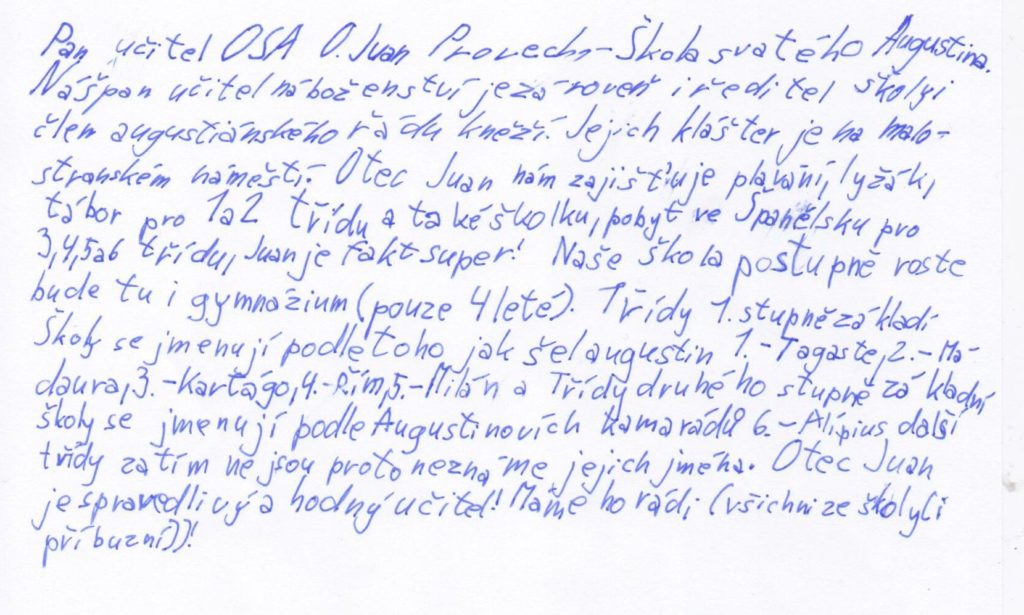 Pan učitel OSA O. Juan Provecho - Škola svatého Augustina.
Náš pan učitel náboženství je zároveň i ředitel školy i
člen augustiánského řádu kněží. Jejich klášter je na malo-
stranském náměstí. Otec Juan nám zajišťuje plavání, lyžák,
tábor pro 1 a 2 třídu a také školku, pobyt ve Španělsku pro
3,4,5 a 6 třídu, Juan je fakt super! Naše škola postupně roste
bude tu i gymnázium (pouze 4 leté). Třídy 1. stupně základí
Školy se jmenují podle toho jak šel augustin 1.-Tagaste, 2.-Ma-
daura, 3.-Kartágo, 4.-Řím, 5.-Milán a Třídy druhého stupně základní
školy se jmenují podle Augustinovích kamarádů 6.-Alipius další
třídy zatím nejsou proto neznáme jejich jména. Otec Juan
je spravedlivý a hodný učitel! Máme ho rádi (všichni ze školy i
příbuzní))!